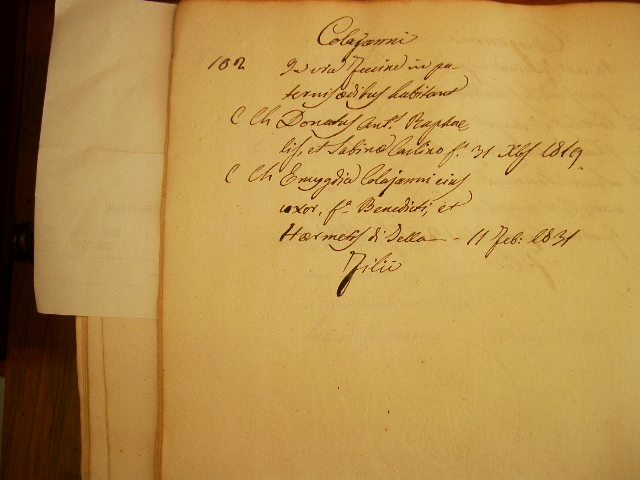 Colajanni
102 In via Fucine in pa-
ternis ædibus habitant
C Ch Donatus Ant.s Raphae
lis, et Sabinæ Carlino f.s 31 Xbs 1819
C Ch Emygdia Colajanni ejus
uxor, f.a Benedicti, et
Hærmetis di Iella - 11 Feb: 1831
Filii